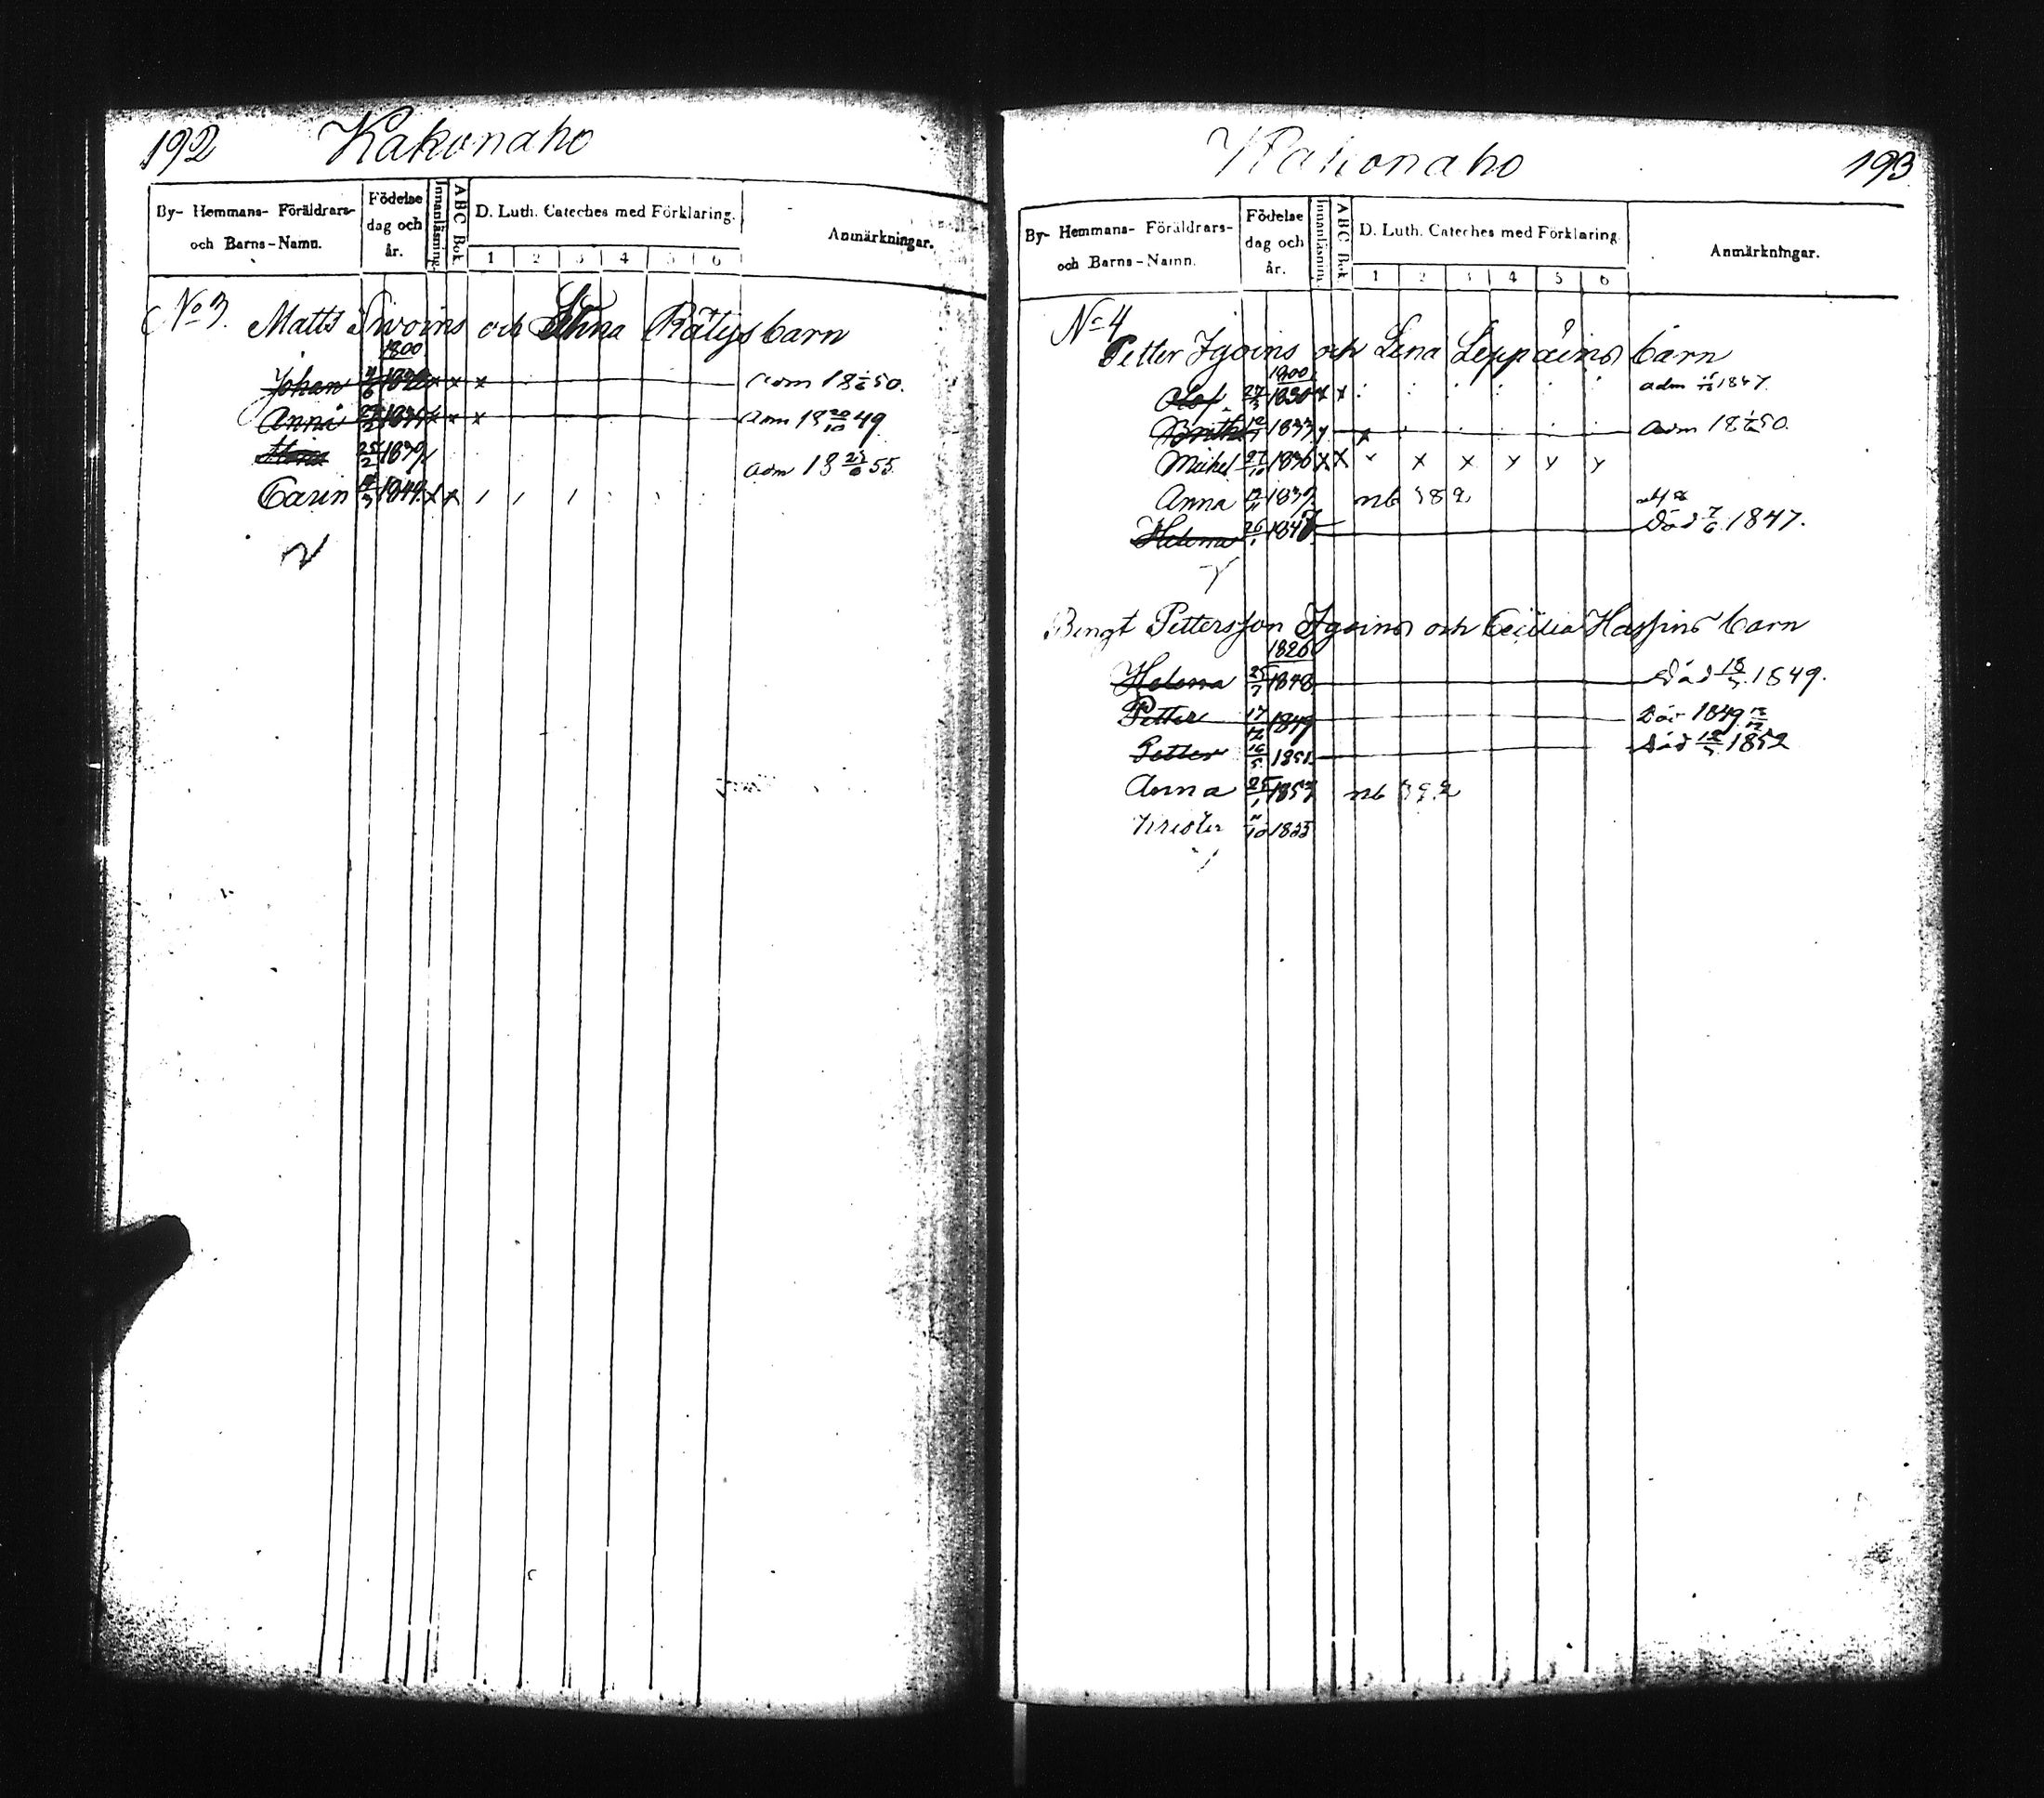 192 Kakonaho
By- Hemmans- Föräldrars- och Barns-Namn.
Födelse dag och år.
Innanläsning.
ABC Bok.
D. Luth. Cateches med Förklaring.
1 2 3 4 5 6
Anmärkningar.
No 3. Matts Swoins och Stina Rätys barn
1800
Johan x x x adm 18 50.
Anna x x adm 18 20/10 49
Stina 25/2 1839 adm 18 55.
Carin 1844 x x
Kakonaho 193
By- Hemmans- Föräldrars- och Barns-Namn.
Födelse dag och år.
Innanläsning.
ABC Bok.
D. Luth. Cateches med Förklaring.
1 2 3 4 5 6
Anmärkningar.
No 4
Petter Igoins och Lena Leppäins barn
1800
Olof 27/3 1830 x x adm 1847.
Brita 1833 x adm 18 50.
Michel 27/10 1836 x x x x x x x x
Anna 1839 nb
Helena 26/1 Död 7/6 1847.
Bengt Pettersson Igoins och Cecilia Hassins barn
1826
Helena 25/7 1848 Död 1849.
Petter 17/12 1849 Död 1849
Petter 16/5 1851 Död 1852
Anna 25/1 1853 nb
Krister